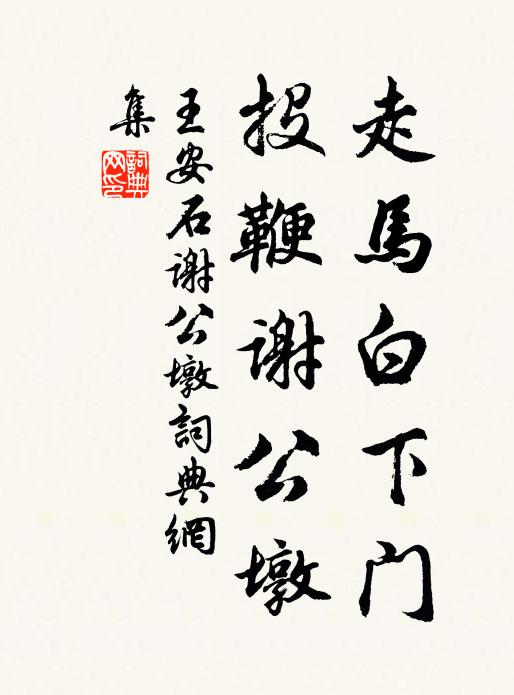 走馬白下门
投鞭谢公墩
王安石谢公墩詞典網
集
詞典网印